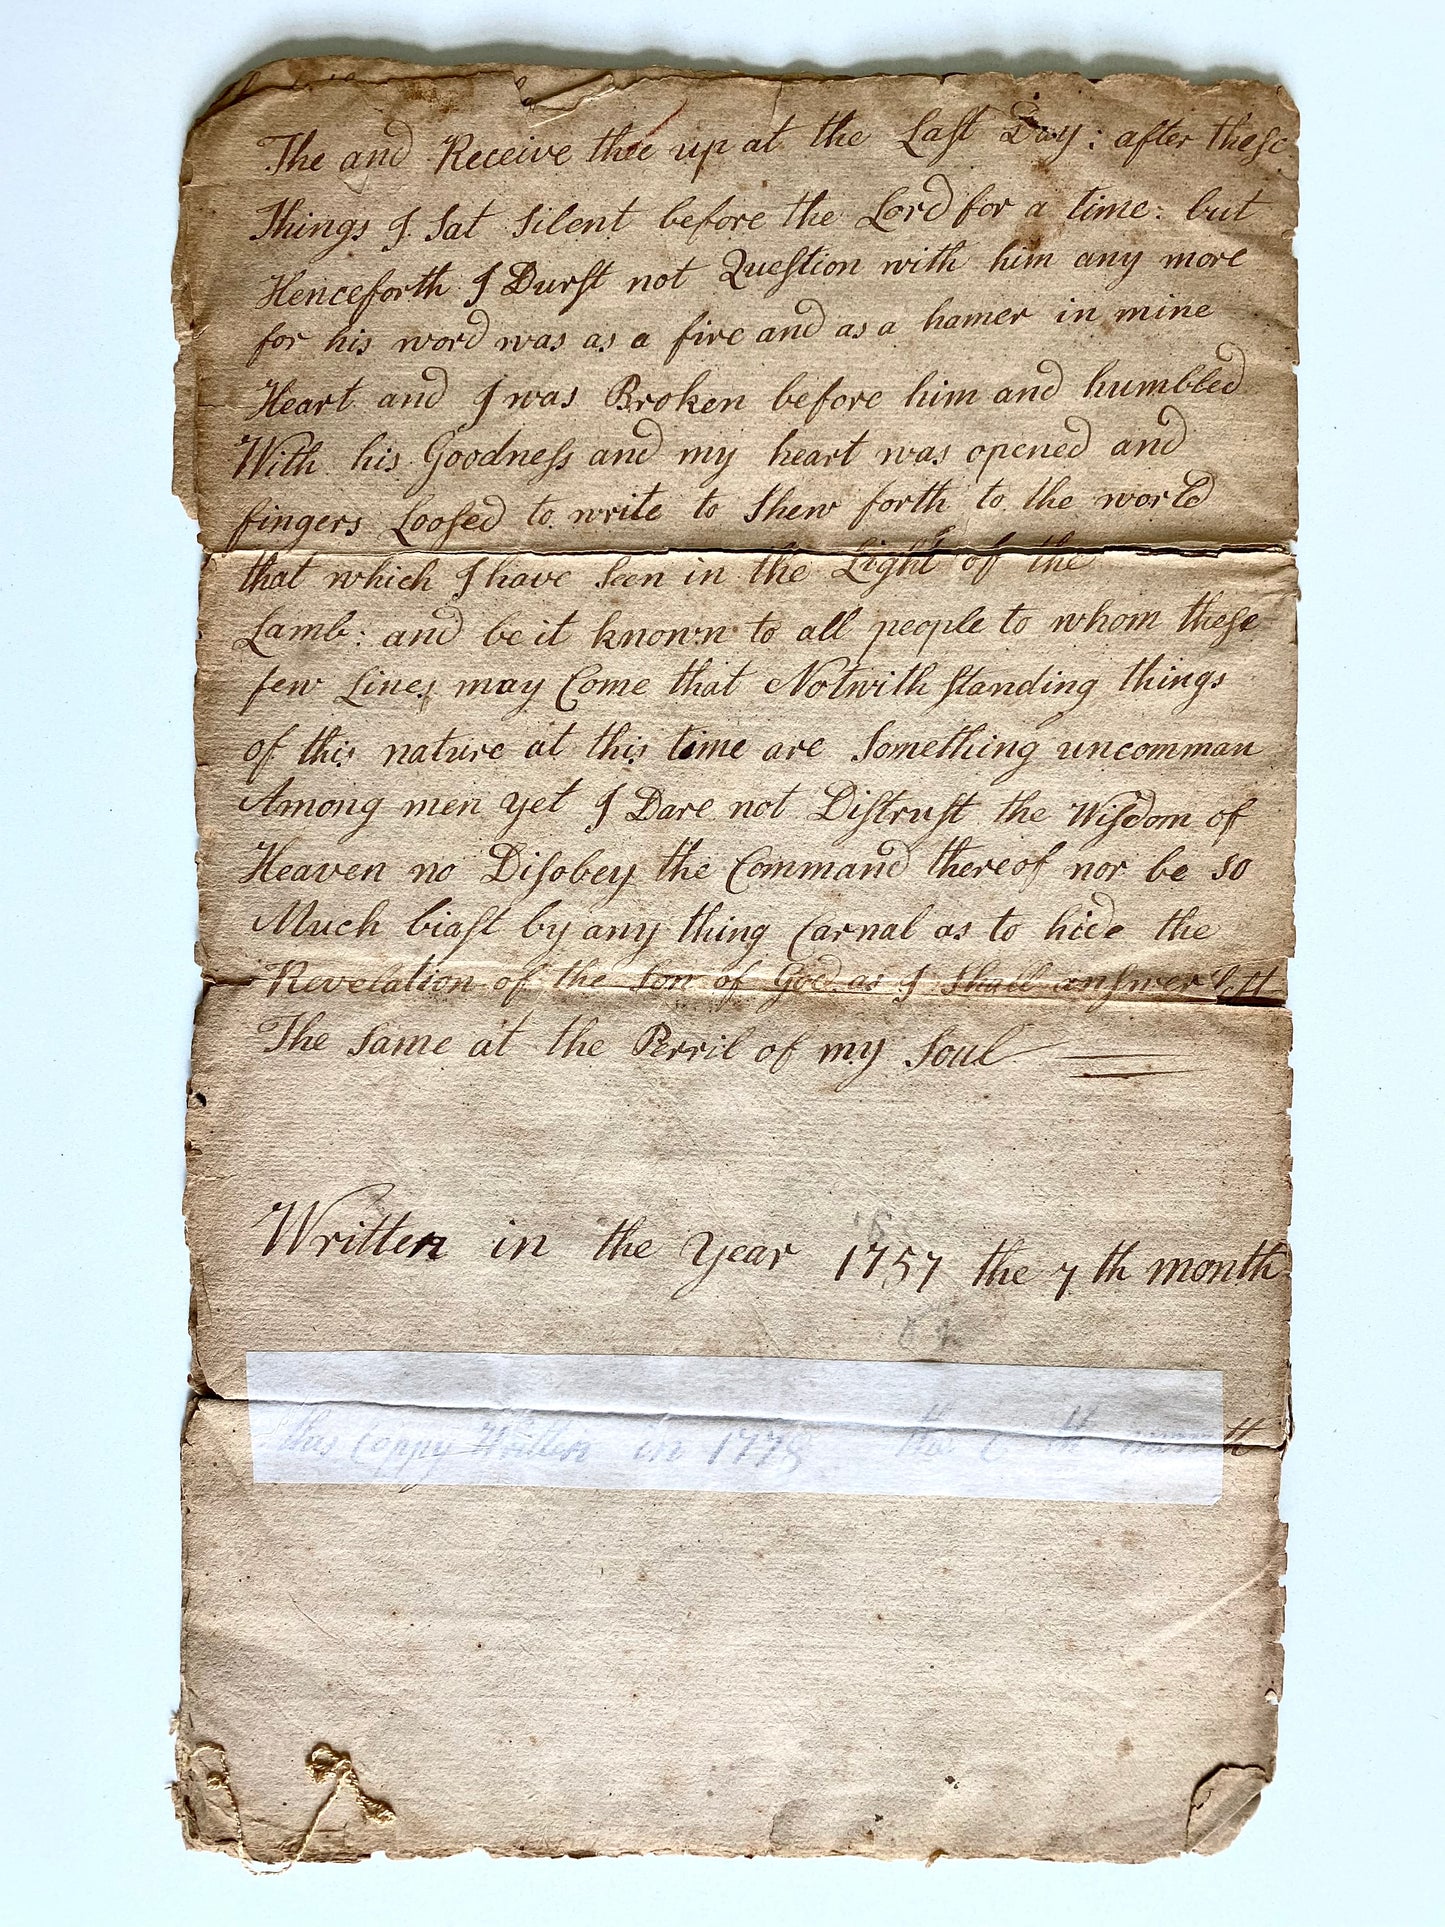 The and Receive thee up at the Last Day: after these
Things I Sat Silent before the Lord for a time: but
Henceforth I Durst not Question with him any more
for his word was as a fire and as a hamer in mine
Heart and I was Broken before him and humbled
With his Goodness and my heart was opened and
fingers Loosed to write to Shew forth to the world
that which I have Seen in the Light of the
Lamb: and be it known to all people to whom these
few Lines may Come that Notwith standing things
of this nature at this time are Something uncomman
Among men yet I Dare not Distrust the Wisdom of
Heaven no Disobey the Command thereof nor be so
Much biast by any thing Carnal as to hide the
Revelation of the Son of God as I Shall answer
The Same at the Perril of my Soul
Written in the year 1757 the 7th month
this Coppy Written in 1778 the th month